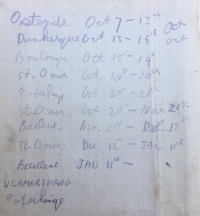 Ostende Oct 7 - 13th Oct
Dunkerque Oct 13 - 15th Oct
Boulogne Oct 15 - 19th
St. Omer Oct 19 - 20th
Oct 20 - 21st
St. Omer Oct 21st - Nov 21st
Bailleul Nov 21st - Dec 12th
St. Omer Dec 12th - JAN. 11th
Bailleul JAN 11th -
VLAMERTINGHE
Poperinge